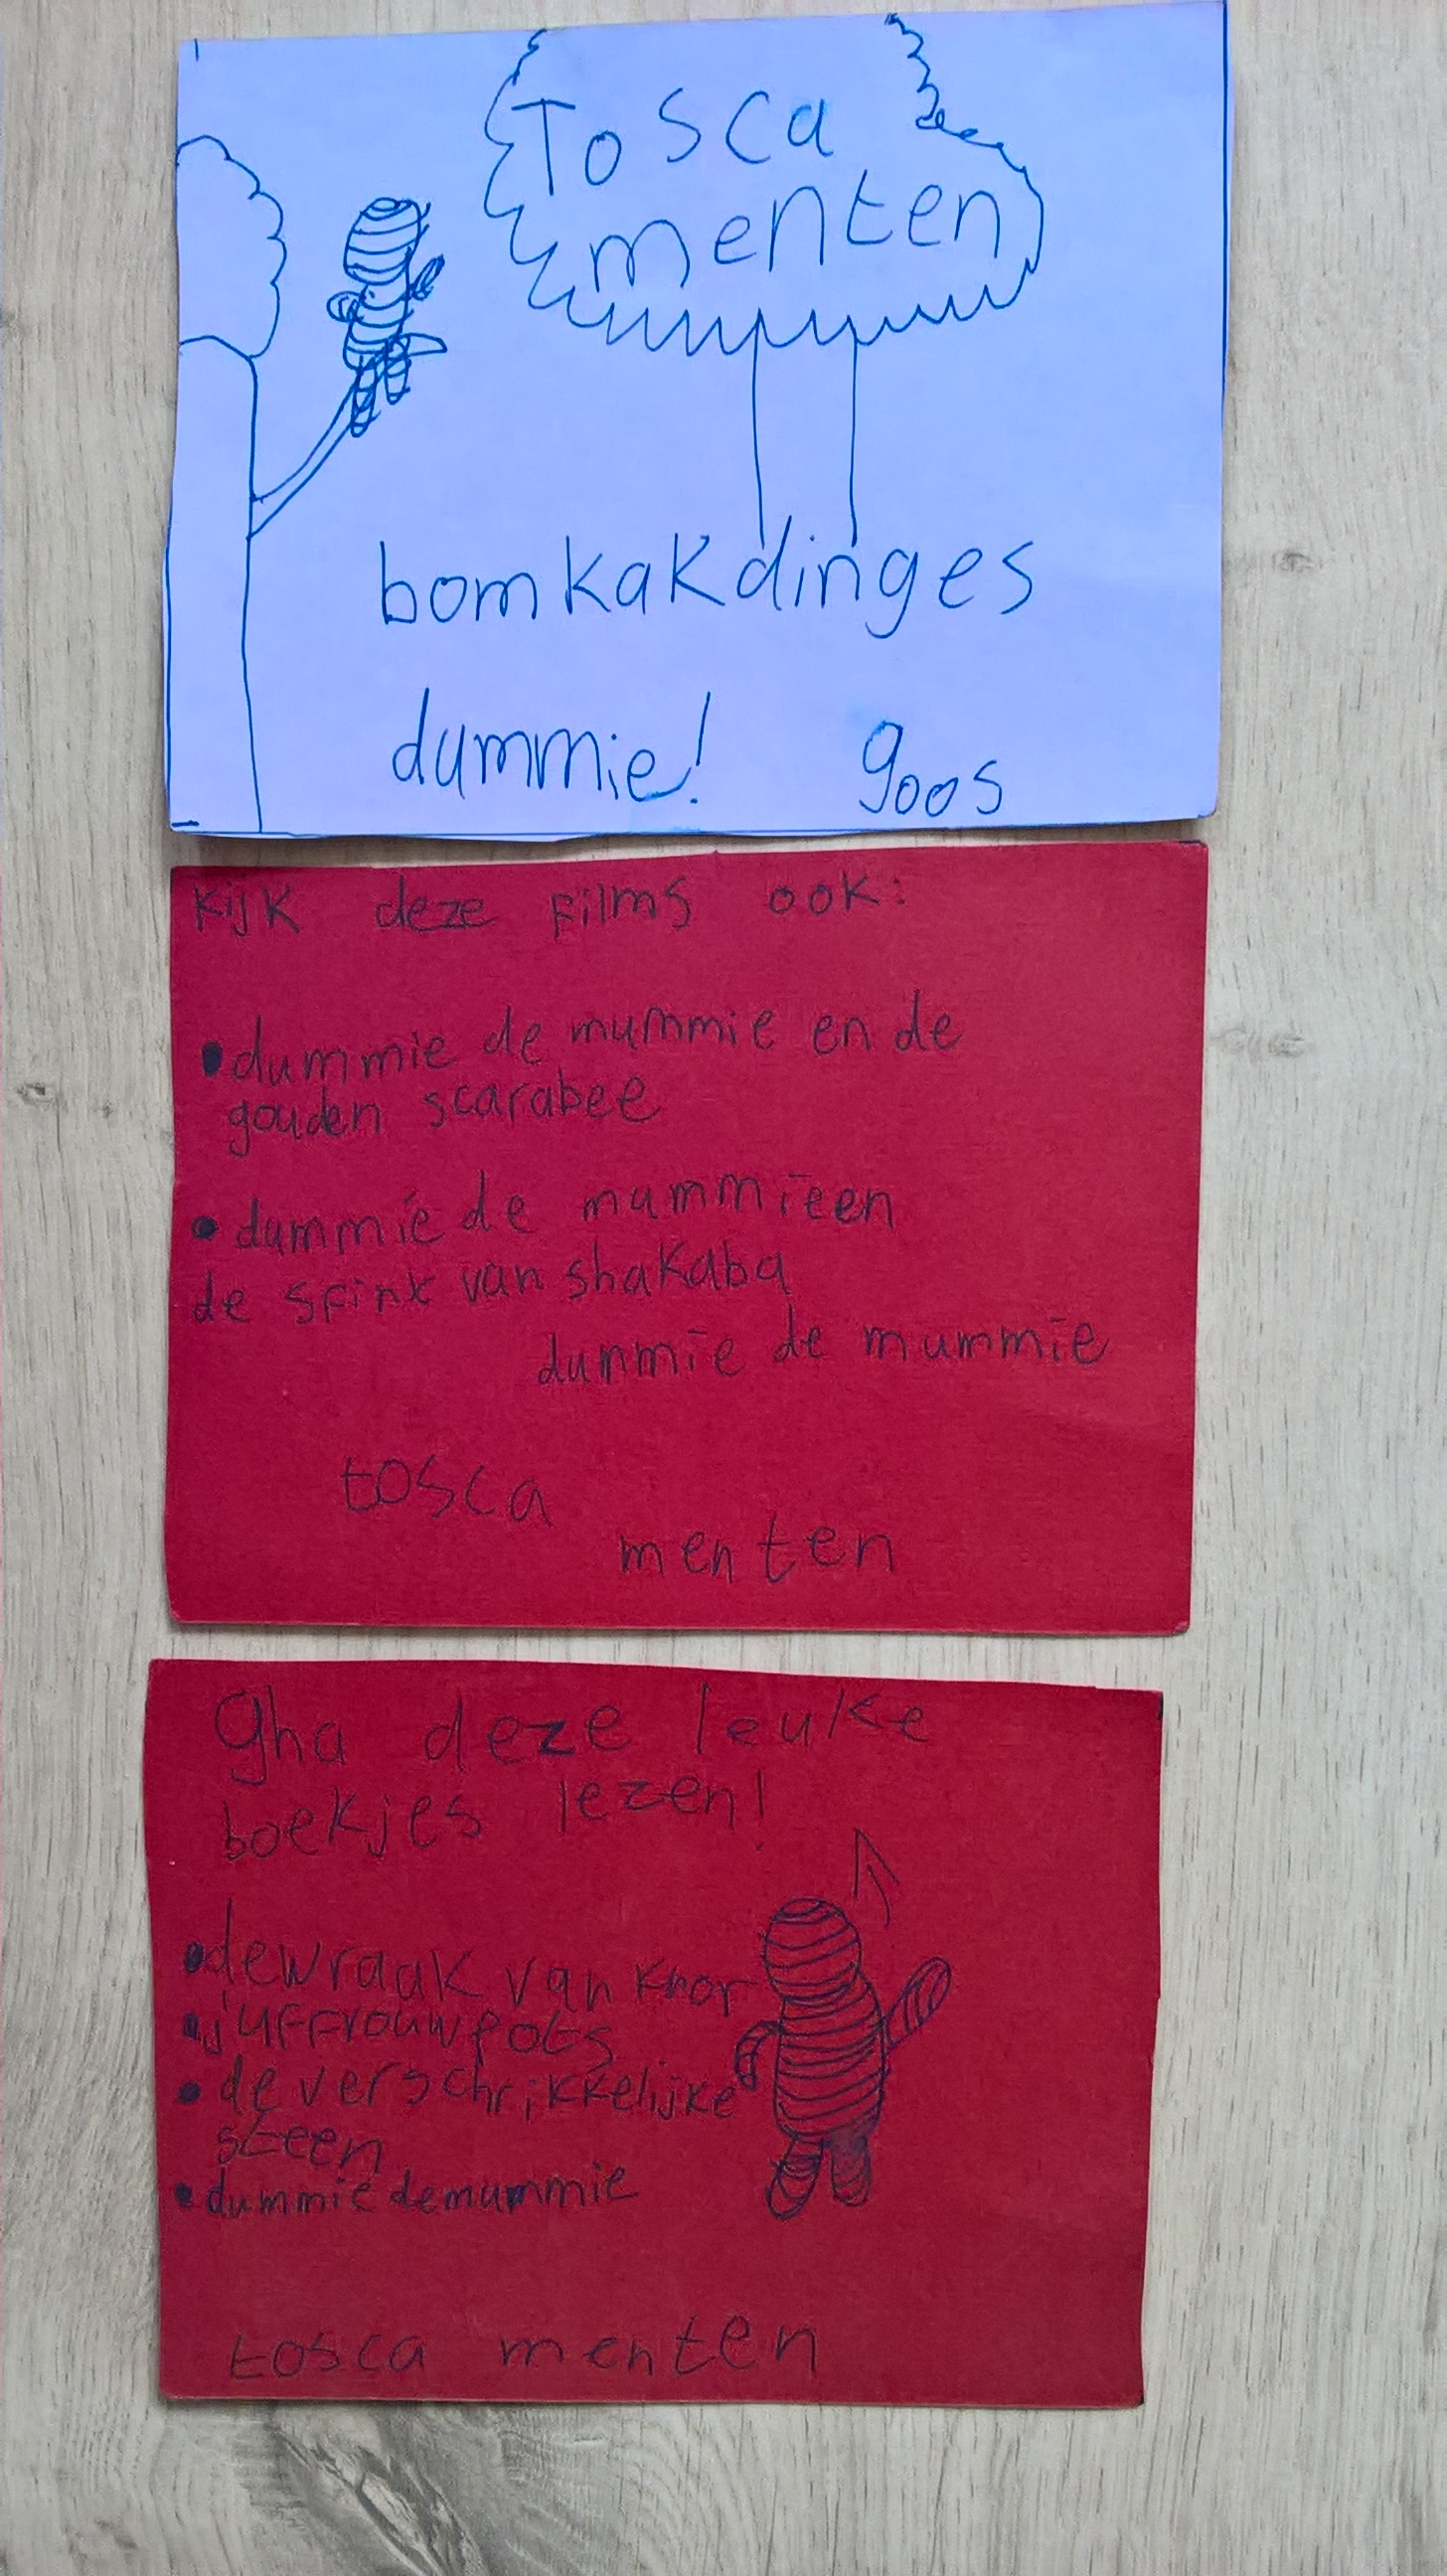 Tosca
menten
bomkakdinges
dummie! goos
kijk deze films ook:
• dummie de mummie en de
gouden scarabee
• dummie de mummieen
de sfink van shakaba
dummie de mummie
tosca
menten
gha deze leuke
boekjes lezen!
• dewraak van knor
• juffrouwpots
• de verschrikkelijke
steen
• dummie demummie
tosca menten